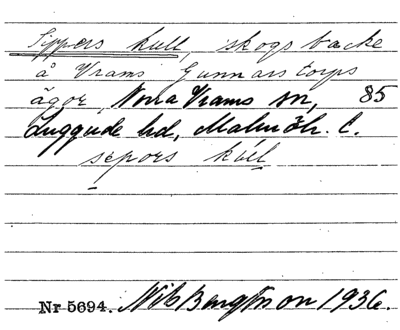 Sippers kull, skogsbacke
å Vrams Gunnarstorps
ägor, Norra Vrams sn, 85
Luggude hd, Malmöh. l.
sepors kúl
Nr 5694. Nils Bengtsson 1936.